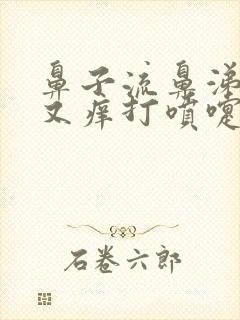 鼻子流鼻涕
又痒打喷嚏
石卷六郎